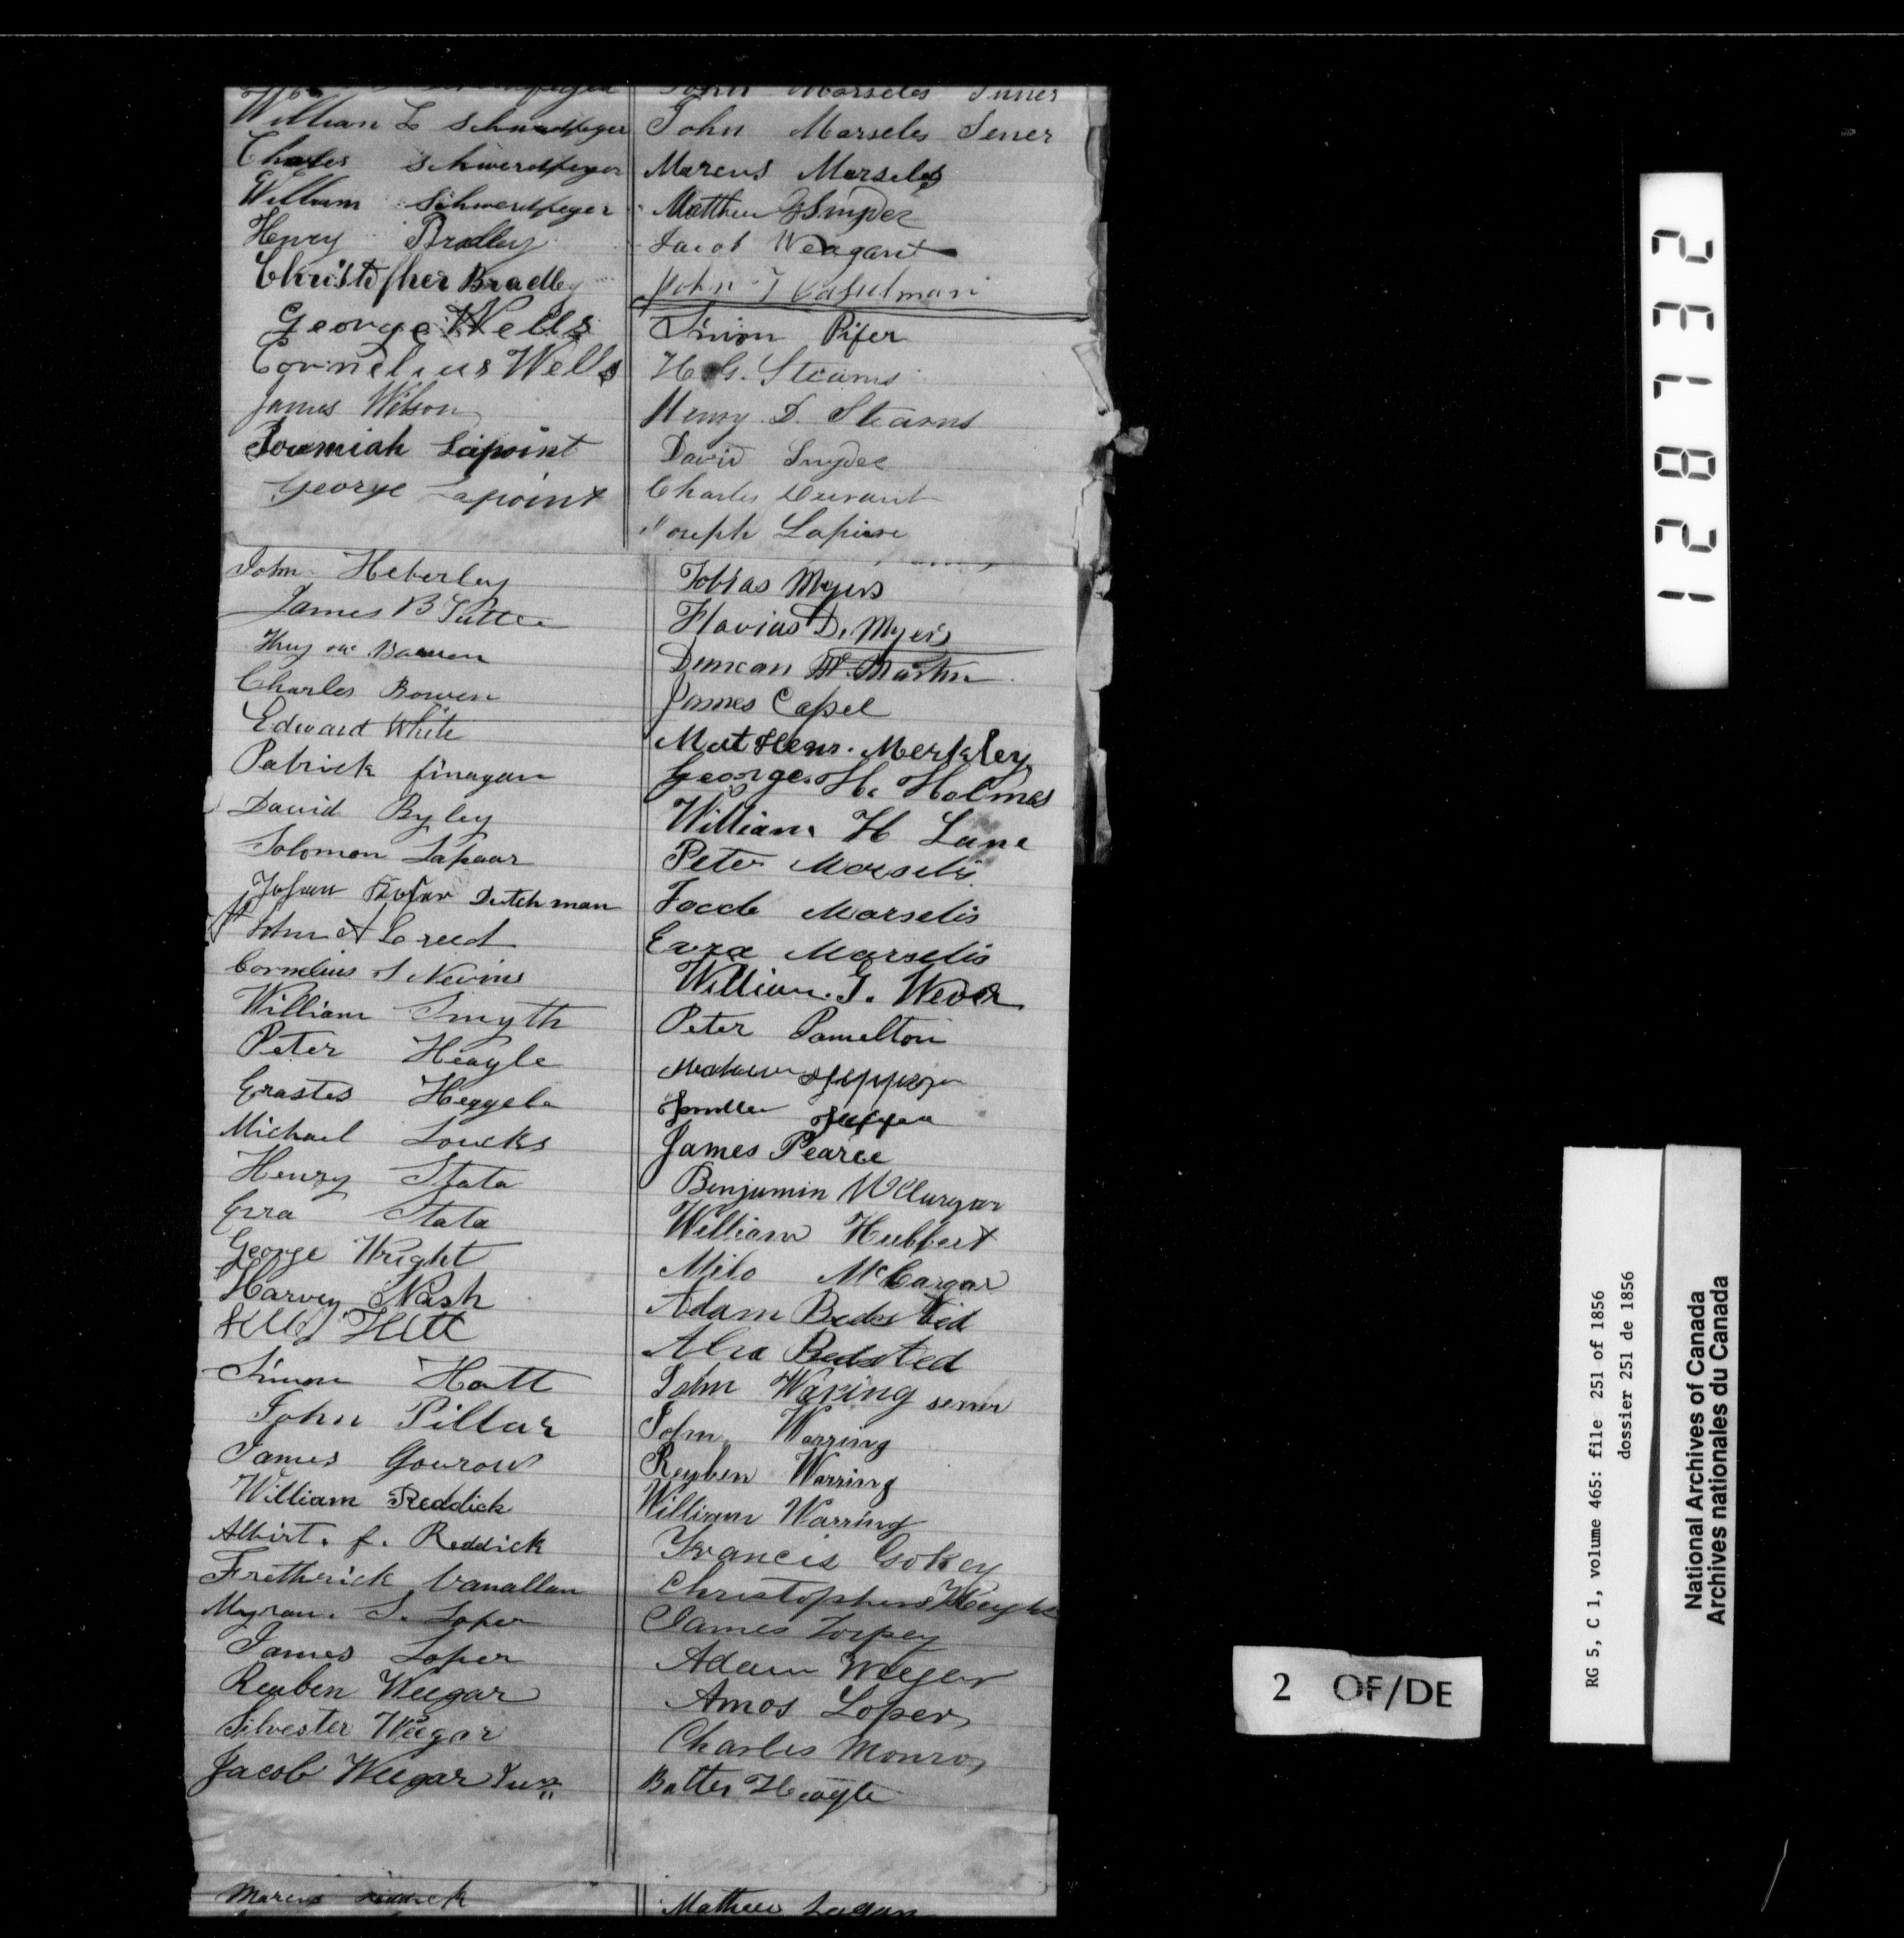 John Marseles Juner
William L Schwerdfeger
Charles Schwerdfeger
William Schwerdfeger
Henry Bradley
Christopher Bradley
George Wells
Cornelius Wells
James Wilson
Jeremiah Lapoint
George Lapoint
John Marseles Sener
Marcus Marseles
Matthew Snyder
Jacob Weagant
John J Casselman
Simon Pifer
H. G. Stearns
Henry D. Stearns
David Snyder
Charles Durant
Joseph Lapiere
John Heberley
James B Tuttle
Charles Bowen
Edward White
Patrick finagan
David Byley
Solomon Lapaar
Dutchman
John A Creed
Cornelius S Nevins
William Smyth
Peter Heagle
Erastes Heggele
Michael Loucks
Henry Stata
Ezra Stata
George Wright
Harvey Nash
Simon Hatt
John Pillar
James Gourow
William Reddick
Albirt. f. Reddick
Fretherick Vanallan
Myran. S. Loper
James Loper
Reuben Weegar
Silvester Weegar
Jacob Weegar Junr
Tobias Myers
Flavius D. Myers
Duncan Martin
James Capel
Merkley
George. H. Holmes
William H Lane
Peter Marselis
Jacob Marselis
Ezra Marselis
William. G.
Peter Pamelton
James Pearce
Benjamin
William Hubbert
Milo McCargar
Adam Bedsted
Alva Bedsted
John Waring senior
John Warring
Reuben Warring
William Warring
Francis Gokey
Christopher
James Torpey
Adam Weegar
Amos Loper
Charles Monro
Heagle
Marcus Reddick
Mathew Logan
128732
RG 5, C 1, volume 465: file 251 of 1856
dossier 251 de 1856
National Archives of Canada
Archives nationales du Canada
2 OF/DE